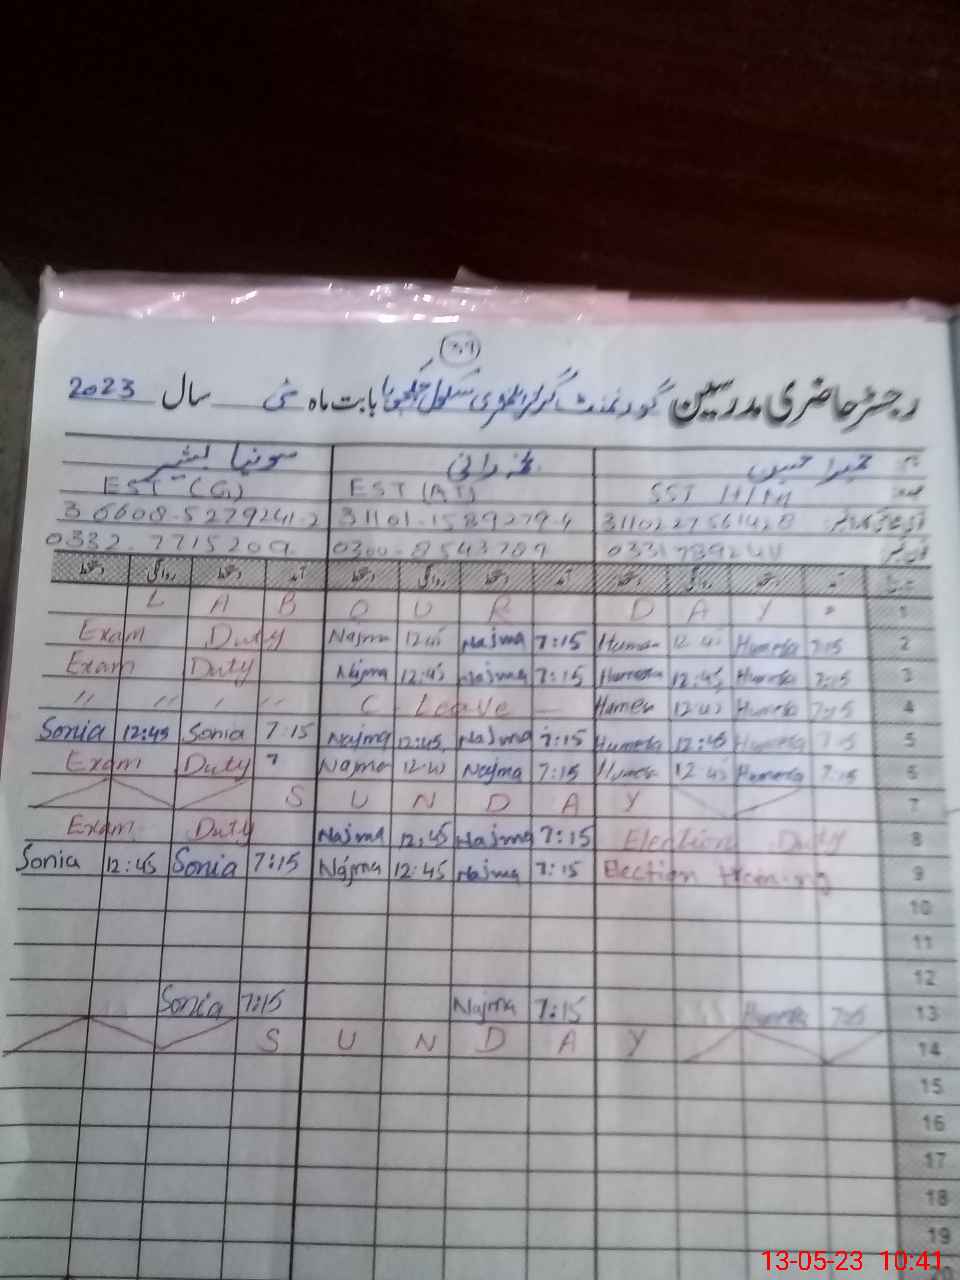 رجسٹر حاضری مدرسین گورنمنٹ گرلز سکول بابت ماہ مئی سال 2023
سونیا بشیر
EST (G) EST (AT) SST
36608-5279241-2 31101-1589279-4 3110227561428
0332-7715209 0300-8543789
L A B O U R D A Y 1
Exam Duty Najma 12:45 Najma 7:15 Humera 12:45 Humera 7:15 2
Exam Duty Najma 12:45 Najma 7:15 Humera 12:45 Humera 7:15 3
" " " " C-Leave — Humera 12:45 Humera 7:15 4
Sonia 12:45 Sonia 7:15 Najma 12:45 Najma 7:15 Humera 12:45 Humera 7:15 5
Exam Duty Najma 12:45 Najma 7:15 Humera 12:45 Humera 7:15 6
S U N D A Y 7
Exam Duty Najma 12:45 Najma 7:15 Election Duty 8
Sonia 12:45 Sonia 7:15 Najma 12:45 Najma 7:15 Election training 9
10
11
12
Sonia 7:15 Najma 7:15 Humera 7:15 13
S U N D A Y 14
15
16
17
18
19
13-05-23 10:41